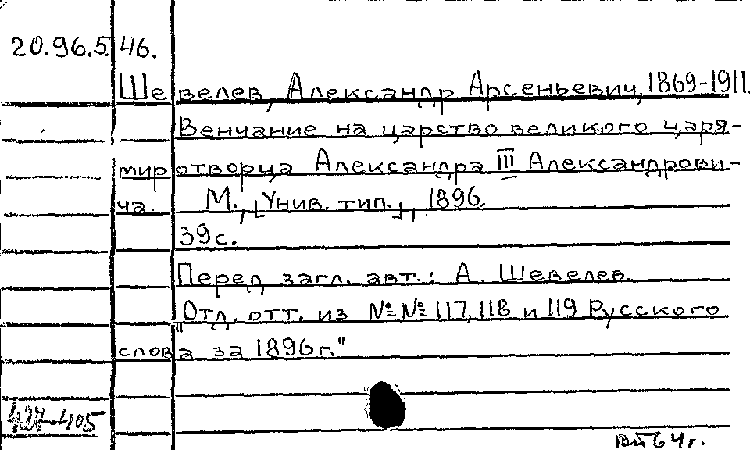 20.96.5 46.
Шевелев, Александр Арсеньевич, 1869-1911.
Венчание на царство великого царя-
миротворца Александра III Александрови-
ча. М., [Унив. тип.], 1896
39 с.
Перед загл. авт.: А. Шевелев.
"Отд. отт. из №№ 117, 118 и 119 Русского
слова за 1896 г."
427-405